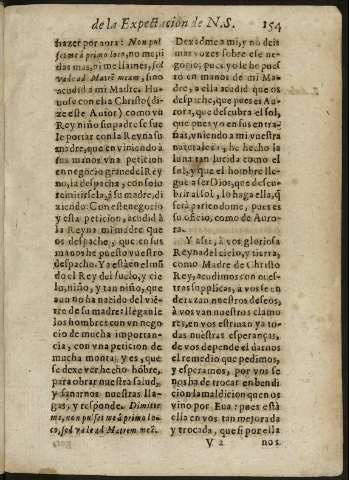 de la Expectacion de N.S. 154
hazer por aora: Non pul
ses me à primo loco, no me pi
das mas, ni me llames, sed
vade ad Matrē meam, sino
acudid à mi Madre. Hu
uose con ella Christo (di-
ze este Autor) como vn
Rey niño su padre se sue
le portar con la Reyna su
madre, que en viniendo à
sus manos vna peticion
en negocio grande del Rey
no, la despacha, con solo
remitirsela, à su madre, di
ziendo: Con este negocio
y esta peticion, acudid à
la Reyna mi madre que
os despache, que en sus
manos he puesto vuestro
despacho. Ya està en el mũ
do el Rey del suelo, y cie
lo, niño, y tan niño, que
aun no ha nacido del viē-
tre de su madre: lleganle
los hombres con vn nego
cio de mucha importan-
cia, con vna peticion de
mucha monta; y es, que
se dexe ver hecho hõbre,
para obrar nuestra salud,
y sanarnos nuestras lla-
gas, y responde. Dimitte
me, non pulses me à primo lo-
co, sed vade ad Matrem meã.
Dexadme a mi, y no deis
mas vozes sobre esse ne-
gocio, pues yo le he pues
to en manos de mi Ma-
dre, a ella acudid que os
despache, que pues es Au-
rora, que descubra el sol,
que puesto yo en sus entra-
ñas, vniendo a mi vuestra
naturaleza, he hecho la
luna tan lucida como el
sol, y que el hombre lle-
gue a ser Dios, que descu-
brir al sol, lo haga ella, q̃
serà pariendome, pues es
su oficio, como de Auro-
ra.
Y assi, à vos gloriosa
Reyna del cielo, y tierra,
como Madre de Christo
Rey, acudimos con nues-
tras suplicas, à vos se en
derezan nuestros deseos,
à vos van nuestros clamo
res, en vos estriuan ya to-
das nuestras esperanças,
de vos depende el darnos
el remedio que pedimos,
y esperamos, por vos se
nos ha de trocar en bendi
cion la maldicion que os
vino por Eua: pues està
ella en vos tan mejorada
y trocada, que si por ella
V 2 nos